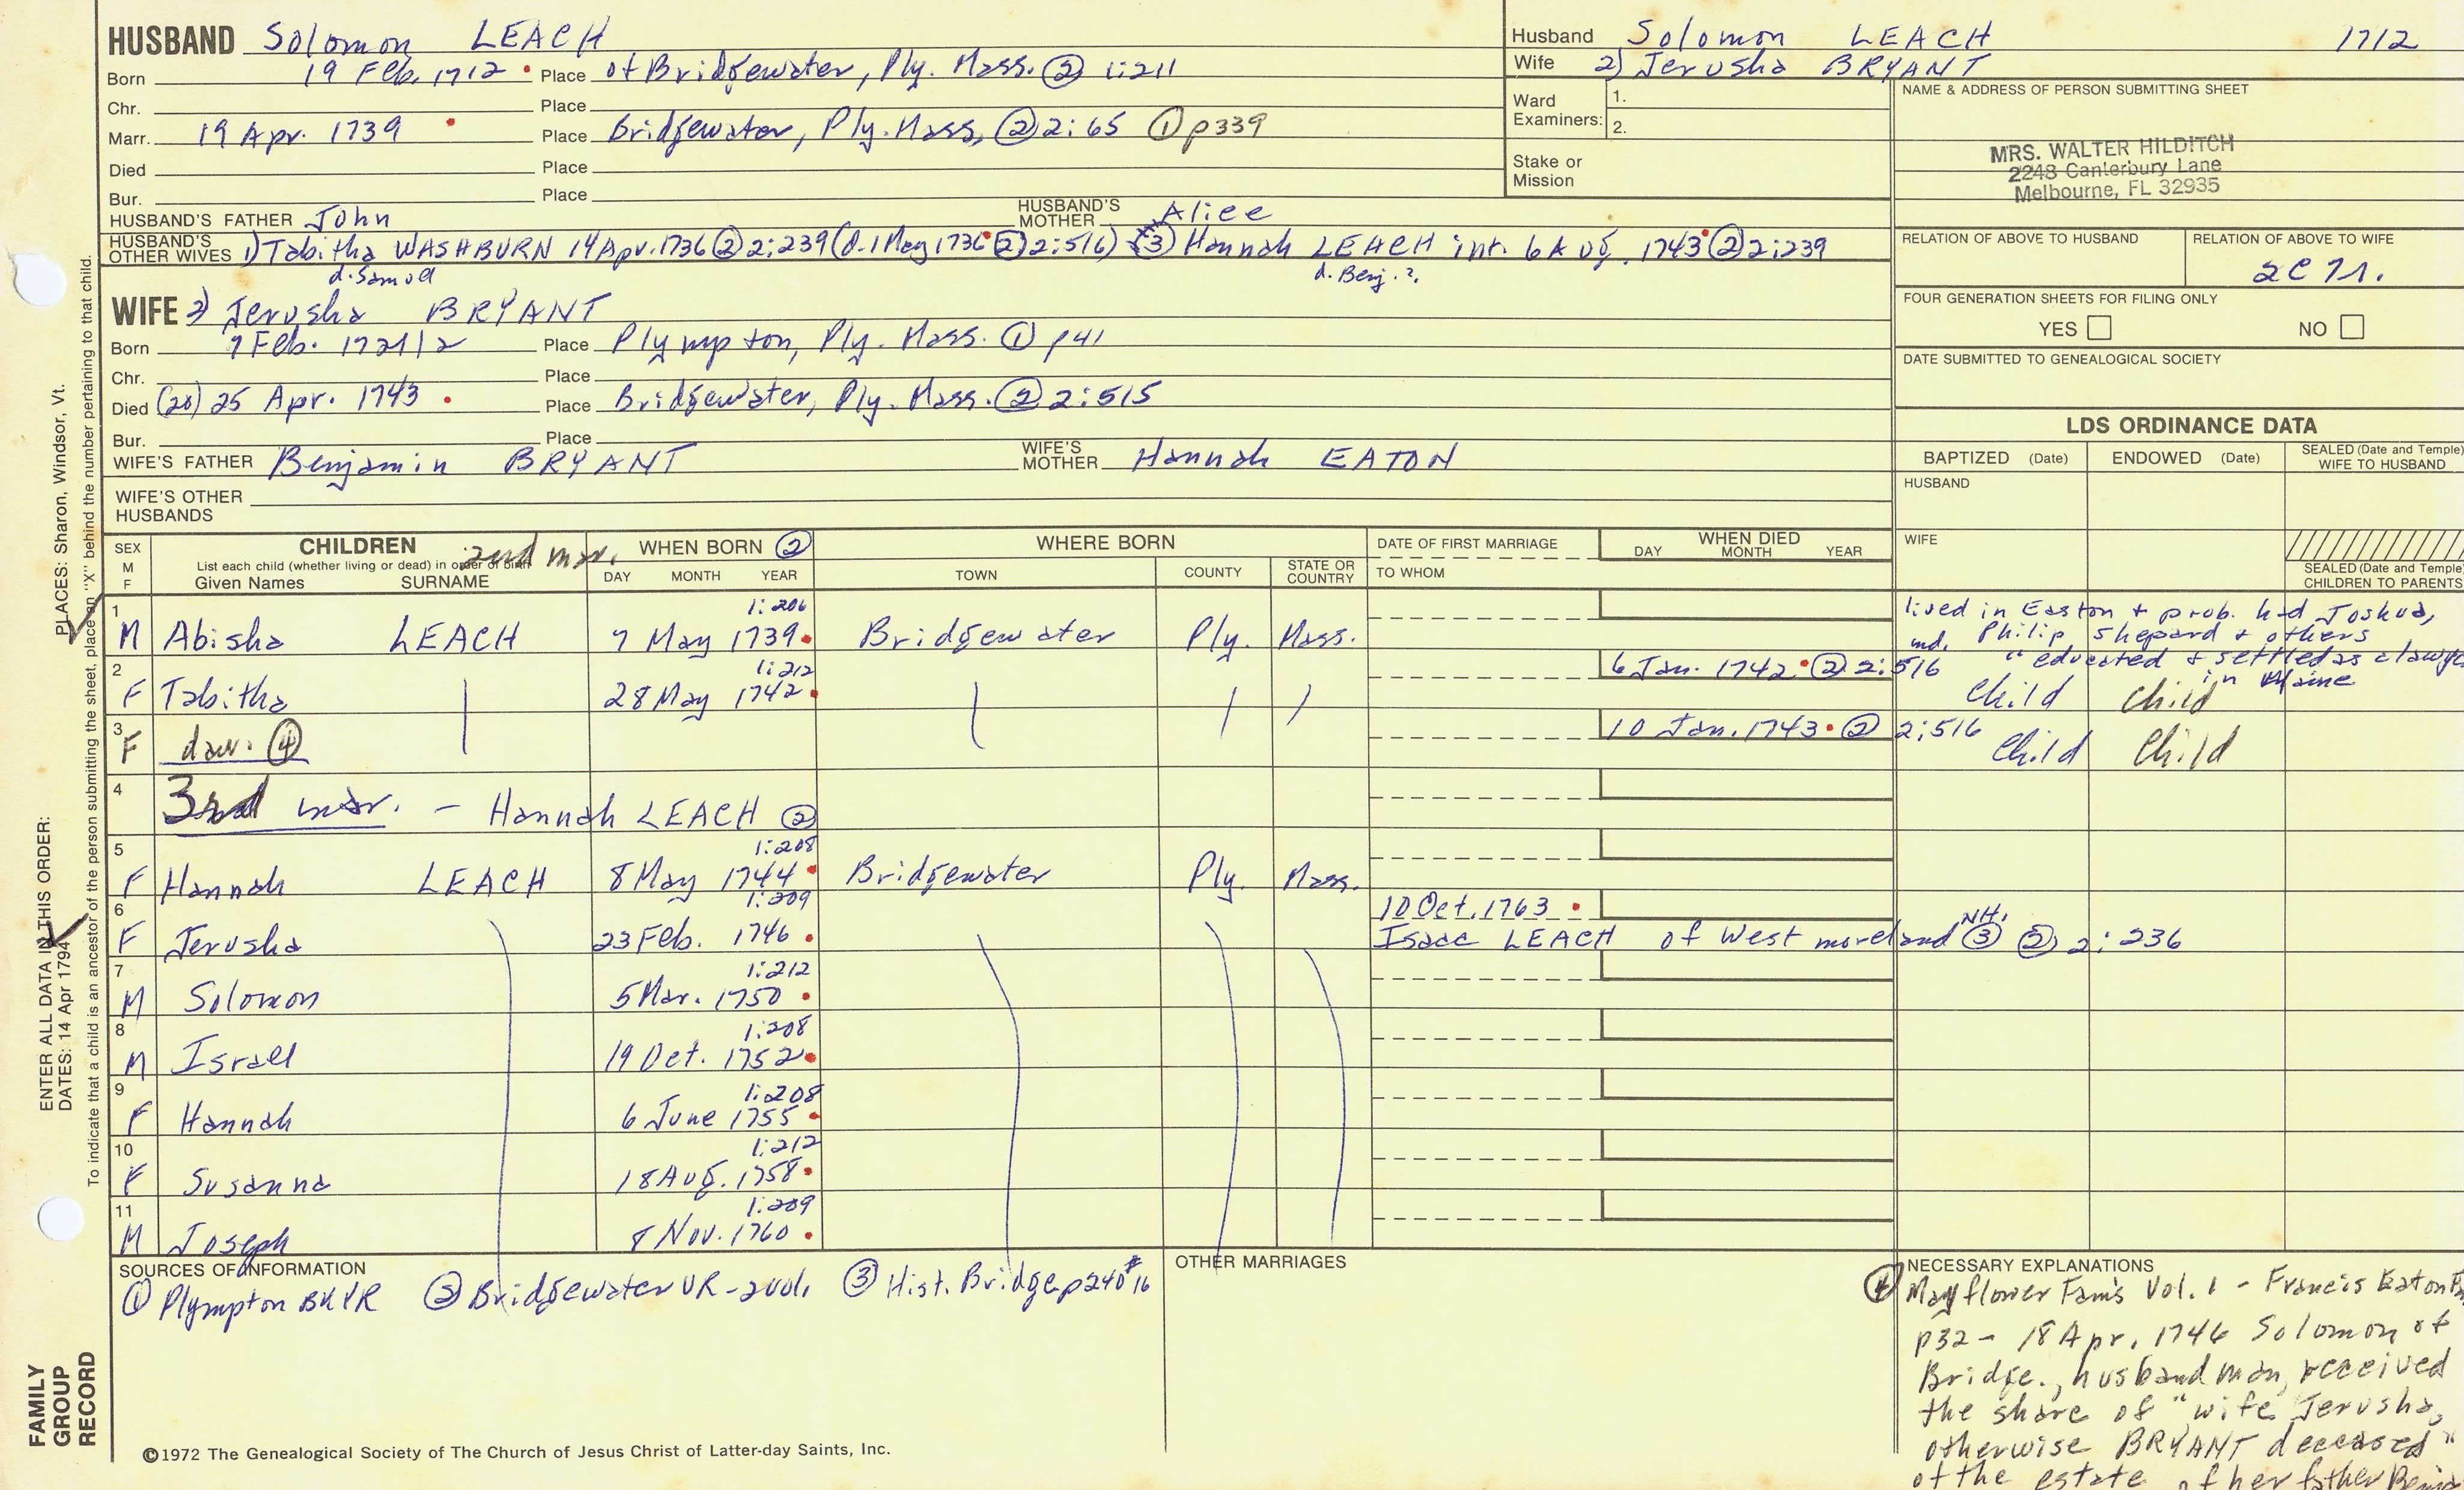 HUSBAND Solomon LEACH
Born 19 Feb. 1712 Place of Bridgewater, Ply. Mass. ② 1:211
Chr. Place
Marr. 19 Apr. 1739 Place Bridgewater, Ply. Mass, ② 2:65 ① p339
Died Place
Bur. Place
HUSBAND'S FATHER John HUSBAND'S MOTHER Alice
HUSBAND'S OTHER WIVES 1) Tabitha WASHBURN 14 Apr. 1736 ② 2:239 (d. 1 May 1736 ② 2:516) ③ Hannah LEACH int. 6 Aug. 1743 ② 2:239
d. Samuel d. Benj.?
WIFE 2) Jerusha BRYANT
Born 7 Feb. 1721/2 Place Plympton, Ply. Mass. ① p41
Chr. Place
Died (28) 25 Apr. 1743 Place Bridgewater, Ply. Mass. ② 2:515
Bur. Place
WIFE'S FATHER Benjamin BRYANT WIFE'S MOTHER Hannah EATON
WIFE'S OTHER HUSBANDS
Husband Solomon LEACH 1712
Wife 2) Jerusha BRYANT
Ward Examiners: 1.
2.
Stake or Mission
NAME & ADDRESS OF PERSON SUBMITTING SHEET
MRS. WALTER HILDITCH
2248 Canterbury Lane
Melbourne, FL 32935
RELATION OF ABOVE TO HUSBAND RELATION OF ABOVE TO WIFE
2C7R.
FOUR GENERATION SHEETS FOR FILING ONLY
YES NO
DATE SUBMITTED TO GENEALOGICAL SOCIETY
LDS ORDINANCE DATA
BAPTIZED (Date) ENDOWED (Date) SEALED (Date and Temple) WIFE TO HUSBAND
HUSBAND
WIFE
SEALED (Date and Temple) CHILDREN TO PARENTS
SEX M F CHILDREN 2nd mar. WHEN BORN ② WHERE BORN DATE OF FIRST MARRIAGE WHEN DIED
List each child (whether living or dead) in order of birth
Given Names SURNAME DAY MONTH YEAR TOWN COUNTY STATE OR COUNTRY TO WHOM DAY MONTH YEAR
1 1:206
M Abisha LEACH 7 May 1739 Bridgewater Ply. Mass.
lived in Easton + prob. had Joshua,
md. Philip, Shepard + others
"educated + settled as a lawye
in Maine
2 1:212 6 Jan. 1742 ② 2:516
F Tabitha 28 May 1742 Child Child
3 10 Jan. 1743 ② 2:516
F dau. ④ Child Child
4 3rd mar. - Hannah LEACH ②
5 1:208
F Hannah LEACH 8 May 1744 Bridgewater Ply. Mass.
6 1:209 10 Oct. 1763
F Jerusha 23 Feb. 1746 Isaac LEACH of Westmoreland NH. ③ ② 2:236
7 1:212
M Solomon 5 Mar. 1750
8 1:208
M Israel 19 Oct. 1752
9 1:208
F Hannah 6 June 1755
10 1:212
F Susanna 18 Aug. 1758
11 1:209
M Joseph 8 Nov. 1760
SOURCES OF INFORMATION
① Plympton BK VR ② Bridgewater VR-2vol. ③ Hist. Bridge p240 #16
OTHER MARRIAGES
NECESSARY EXPLANATIONS
④ Mayflower Fams Vol. 1 - Francis Eaton
p32 - 18 Apr. 1746 Solomon of
Bridge., husbandman, received
the share of "wife Jerusha,
otherwise BRYANT deceased"
of the estate of her father Benj
©1972 The Genealogical Society of The Church of Jesus Christ of Latter-day Saints, Inc.
FAMILY GROUP RECORD
ENTER ALL DATA IN THIS ORDER:
DATES: 14 Apr 1794
PLACES: Sharon, Windsor, Vt.
To indicate that a child is an ancestor of the person submitting the sheet, place an "X" behind the number pertaining to that child.